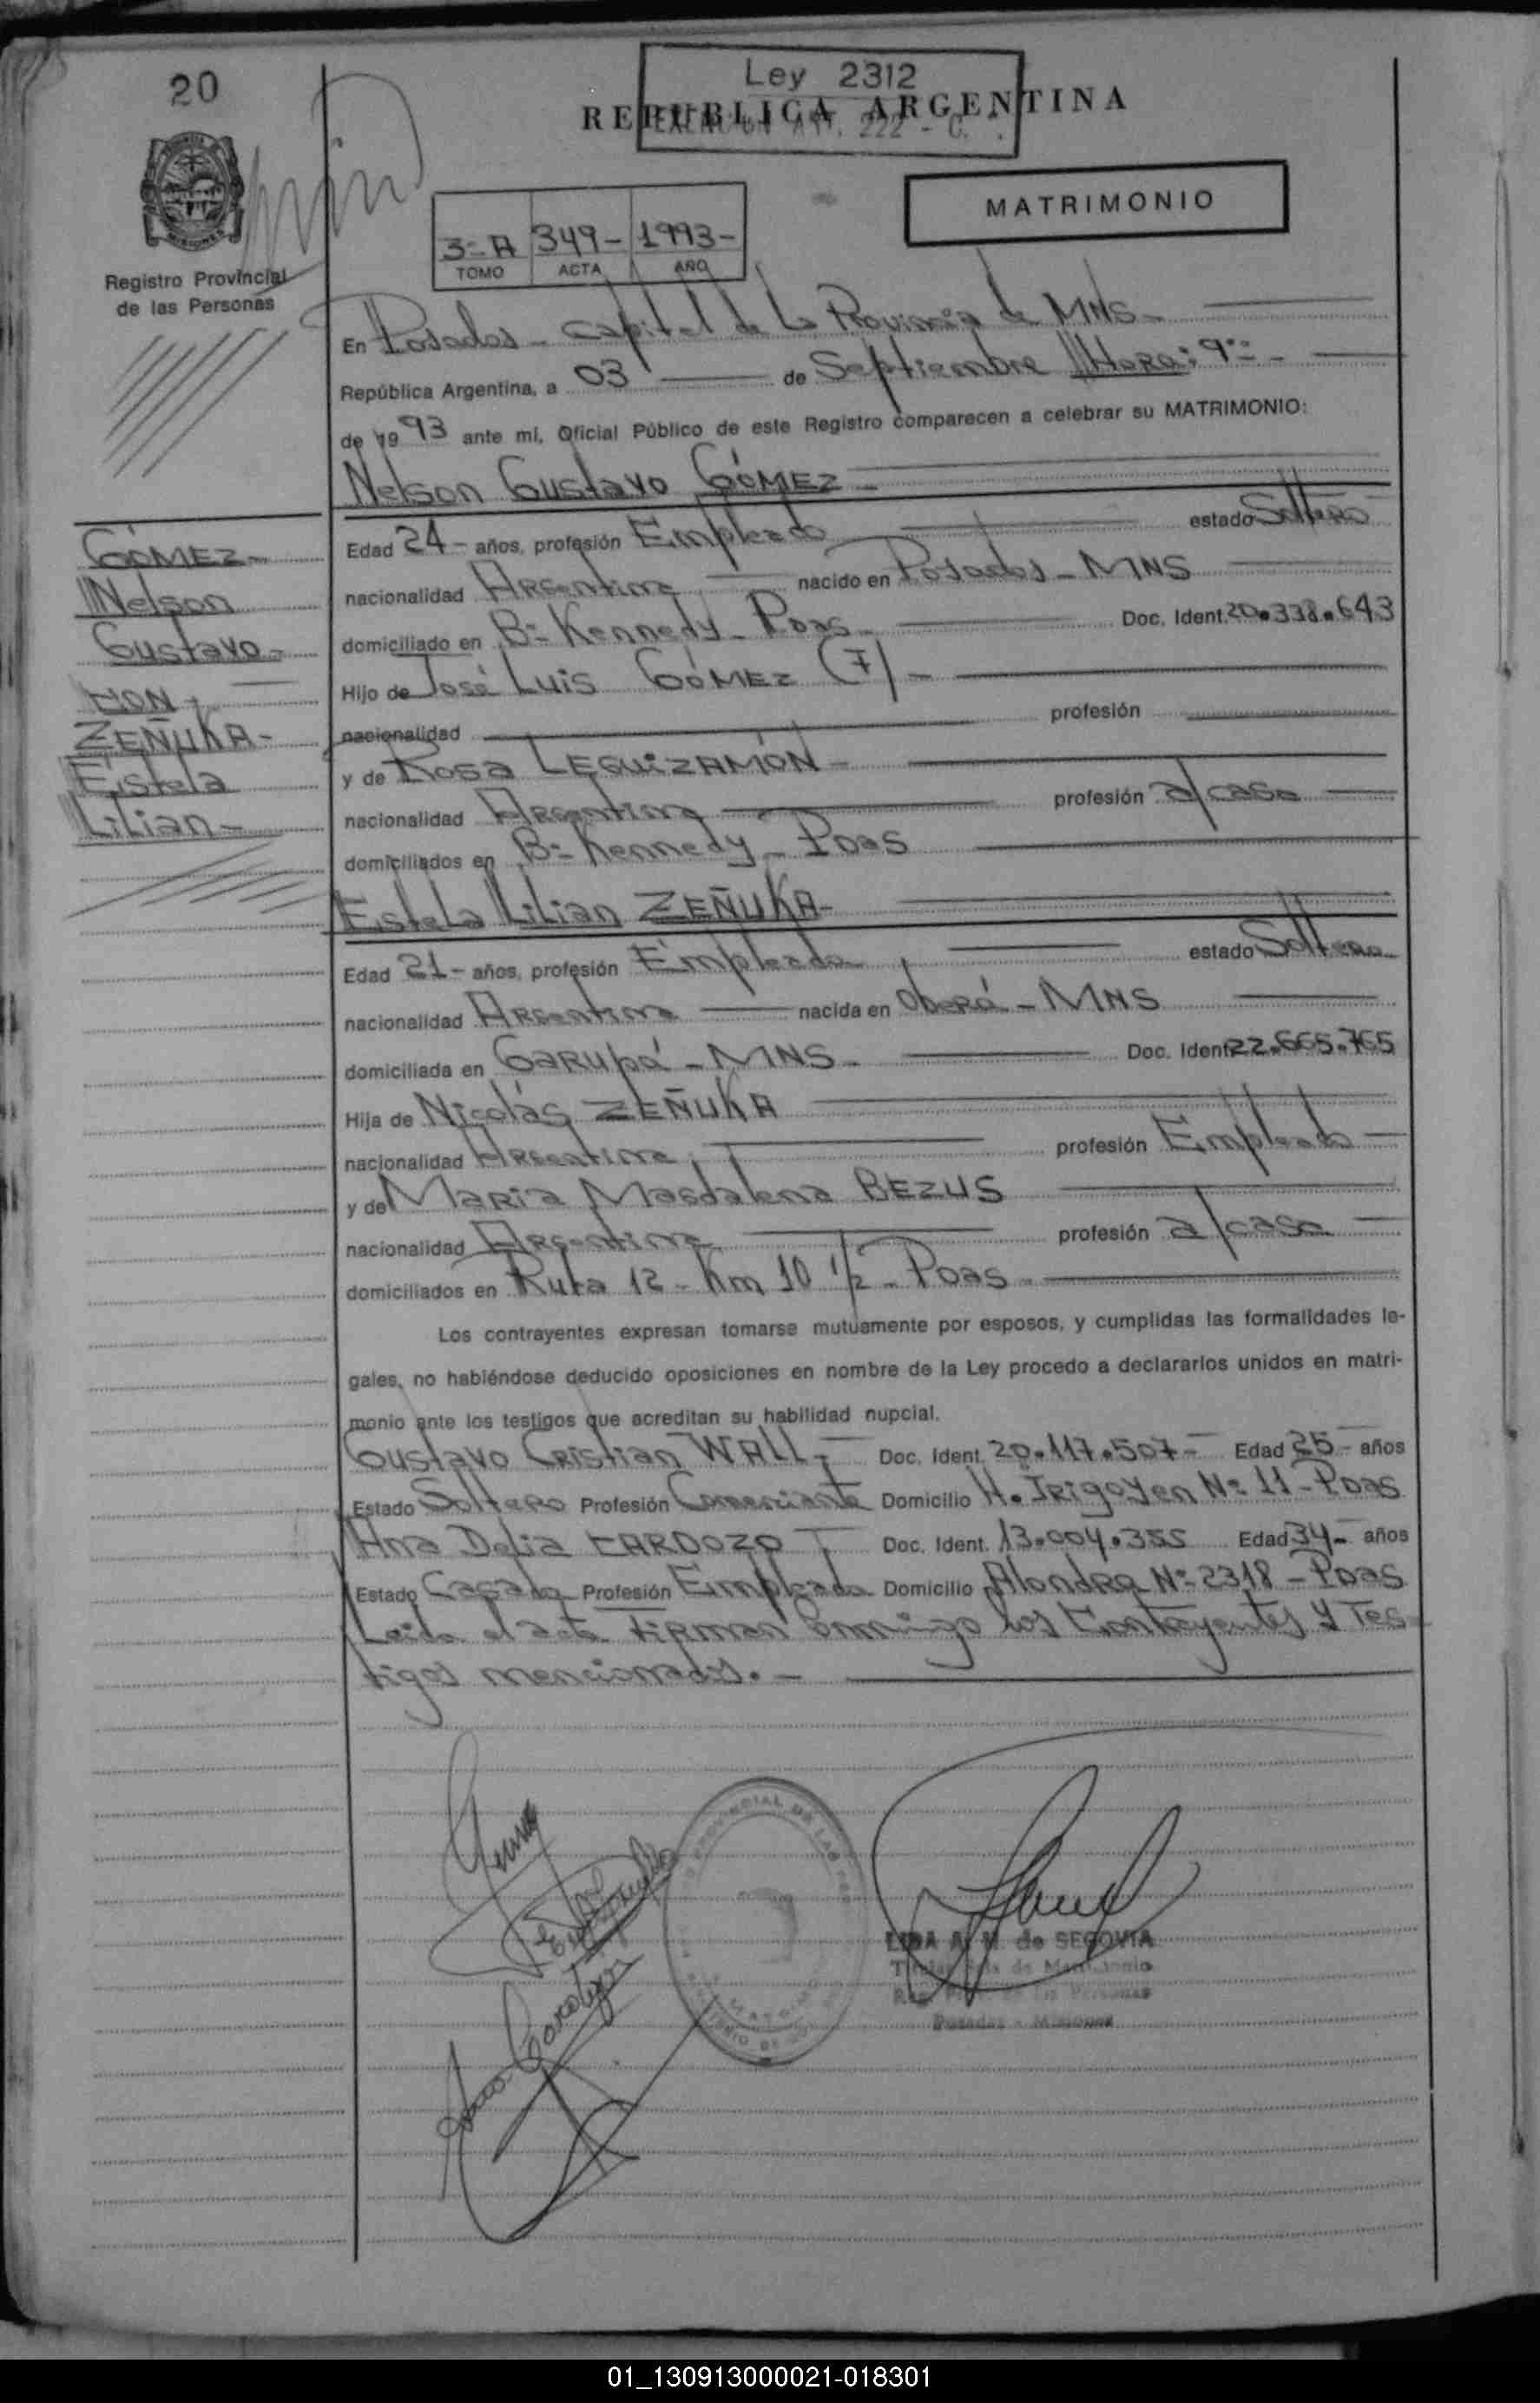 20
Ley 2312
REPUBLICA ARGENTINA
ART. 222 - C.
MATRIMONIO
3=A 349- 1993-
TOMO ACTA AÑO
Registro Provincial
de las Personas
En Posadas - Capital de la Provincia de MNS-
República Argentina, a 03 de Septiembre Hora: 9==-
de 1993 ante mí, Oficial Público de este Registro comparecen a celebrar su MATRIMONIO:
Nelson Gustavo GÓMEZ-
GÓMEZ-
Nelson
Gustavo-
CON
ZEÑUKA-
Estela
Lilian-
Edad 24- años, profesión Empleado estado Soltero
nacionalidad Argentina nacido en Posadas - MNS
domiciliado en B= Kennedy - Pdas- Doc. Ident. 20.338.643
Hijo de José Luis GÓMEZ (7)-
nacionalidad profesión
y de Rosa LEGUIZAMÓN-
nacionalidad Argentina profesión a/casa
domiciliados en B= Kennedy - Pdas
Estela Lilian ZEÑUKA-
Edad 21- años, profesión Empleada estado Soltera
nacionalidad Argentina nacida en Oberá - MNS
domiciliada en Garupá - MNS- Doc. Ident. 22.665.765
Hija de Nicolás ZEÑUKA
nacionalidad Argentina profesión Empleado
y de María Magdalena BEZUS
nacionalidad Argentina profesión a/casa
domiciliados en Ruta 12 - Km 10 1/2 - Pdas-
Los contrayentes expresan tomarse mutuamente por esposos, y cumplidas las formalidades le-
gales, no habiéndose deducido oposiciones en nombre de la Ley procedo a declararlos unidos en matri-
monio ante los testigos que acreditan su habilidad nupcial.
Gustavo Cristian WALL- Doc. Ident. 20.117.507- Edad 25- años
Estado Soltero Profesión Comerciante Domicilio H. Irigoyen N= 11 - Pdas
Ana Delia CARDOZO Doc. Ident. 13.004.355 Edad 34- años
Estado Casada Profesión Empleada Domicilio Alondra N= 2318 - Pdas
Leída el acta firman conmigo los contrayentes y tes-
tigos mencionados.-
LIDA A. M. de SEGOVIA
Titular de Matrimonio
Posadas - Misiones
01_130913000021-018301